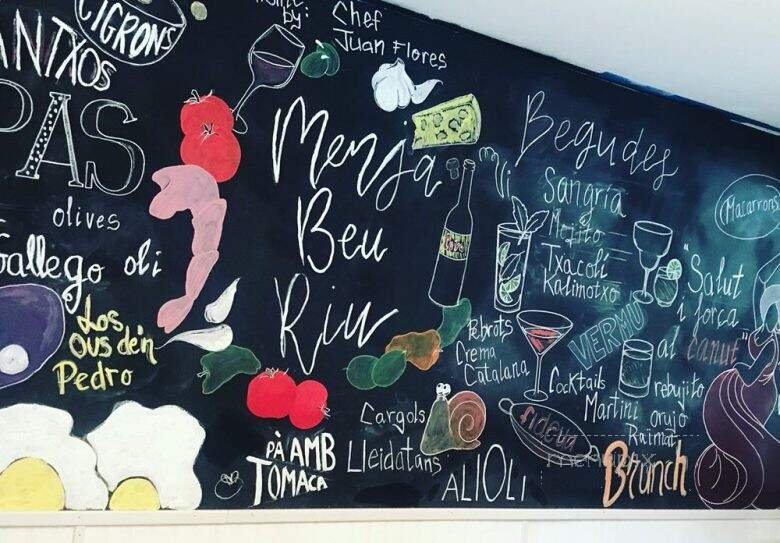 CIGRONS
ANTXOS
PAS
olives
Gallego oli
Los
Ous de'n
Pedro
by:
Chef
Juan Flores
Menja
Beu
Riu
PÀ AMB
TOMACA
Cargols
Lleidatans
ALIOLI
Pebrots
Crema
Catalana
Begudes
Sangría
&
Mojito
Txacolí
Kalimotxo
VERMU
Cocktails
Martini
rebujito
orujo
Raïmat
fideua
Brunch
Macarrons
"Salut
i força
al
canut"